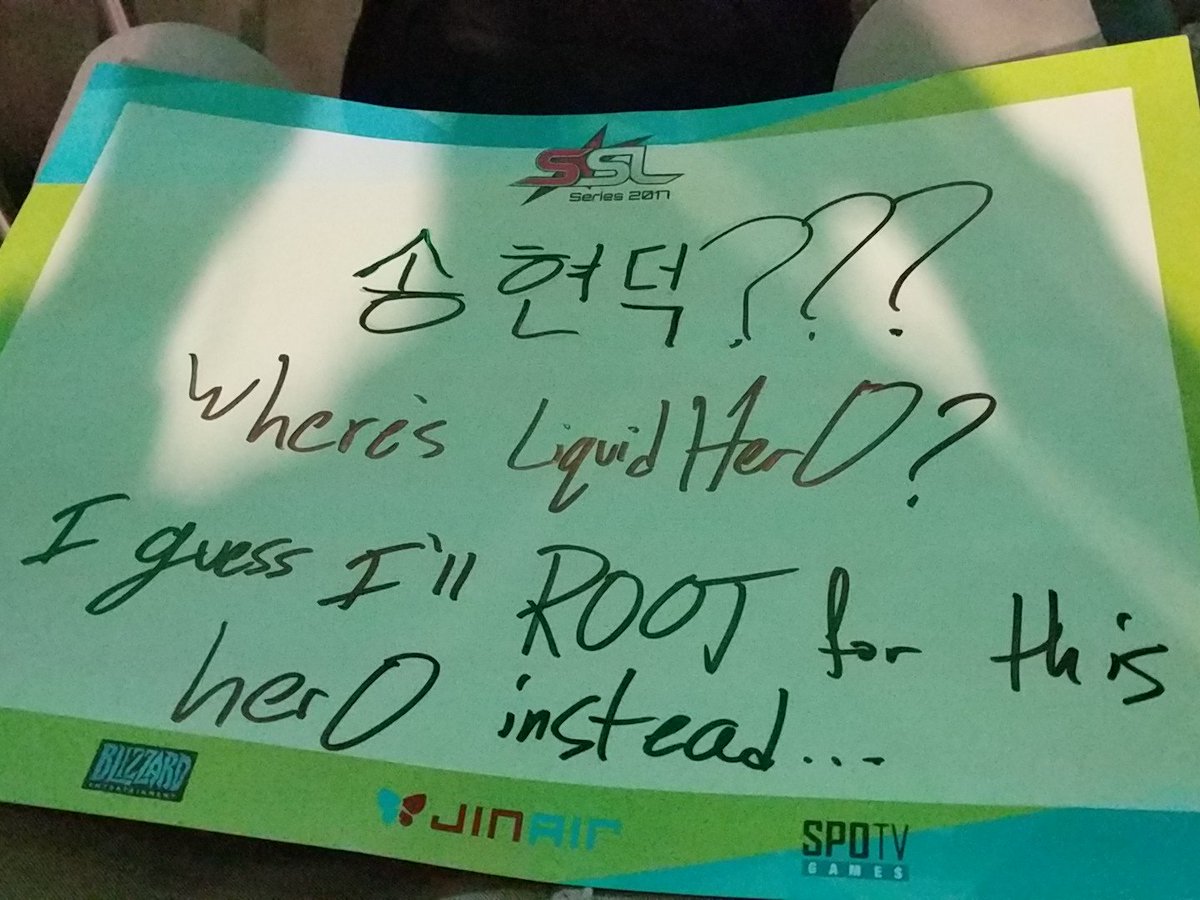 SSL
Series 2017
송현덕???
Where's LiquidHerO?
I guess I'll ROOT for this
herO instead...
BLIZZARD
ENTERTAINMENT
JIN AIR
SPOTV
GAMES